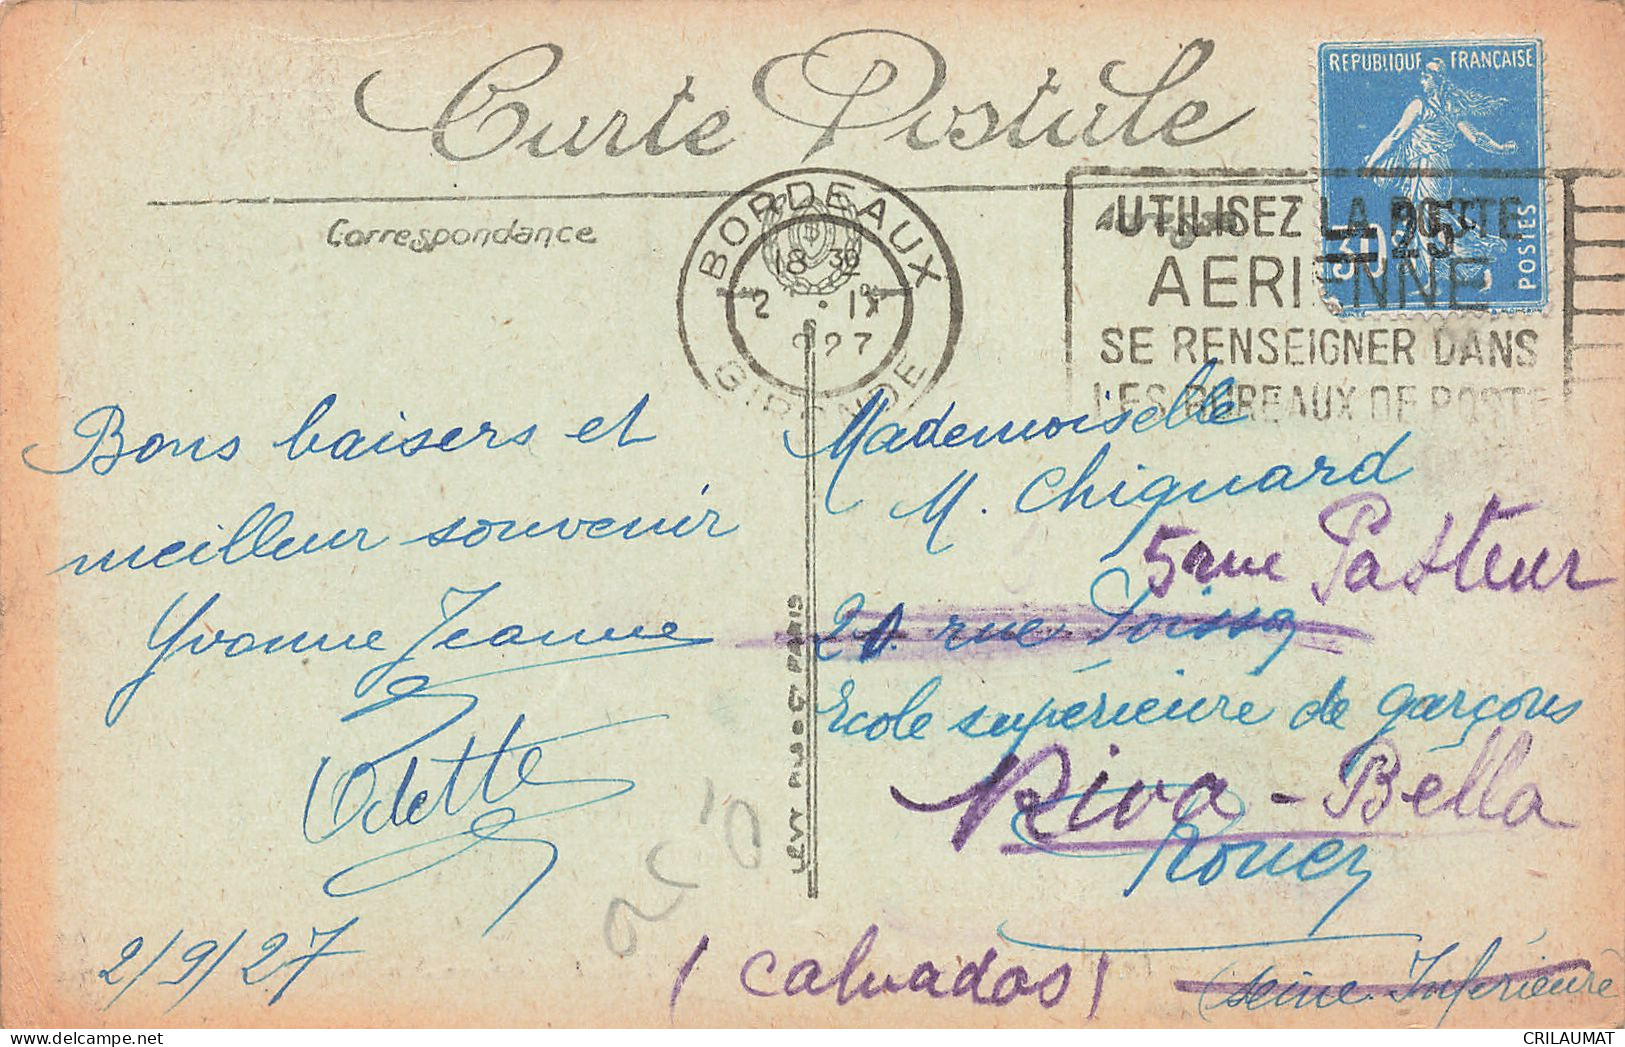 Carte Postale
REPUBLIQUE FRANÇAISE
POSTES
30
25
Correspondance
BORDEAUX
18 30
2 · IX
927
GIRONDE
UTILISEZ LA POSTE
AERIENNE
SE RENSEIGNER DANS
LES BUREAUX DE POSTE
Bons baisers et
meilleur souvenir
Yvonne Jeanne
Odette
2/9/27
PARIS
Mademoiselle
M. Chignard
5 rue Pasteur
rue Poissy
Ecole supérieure de garçons
Riva-Bella
Rouen
(Calvados)
(Seine Inférieure
CRILAUMAT